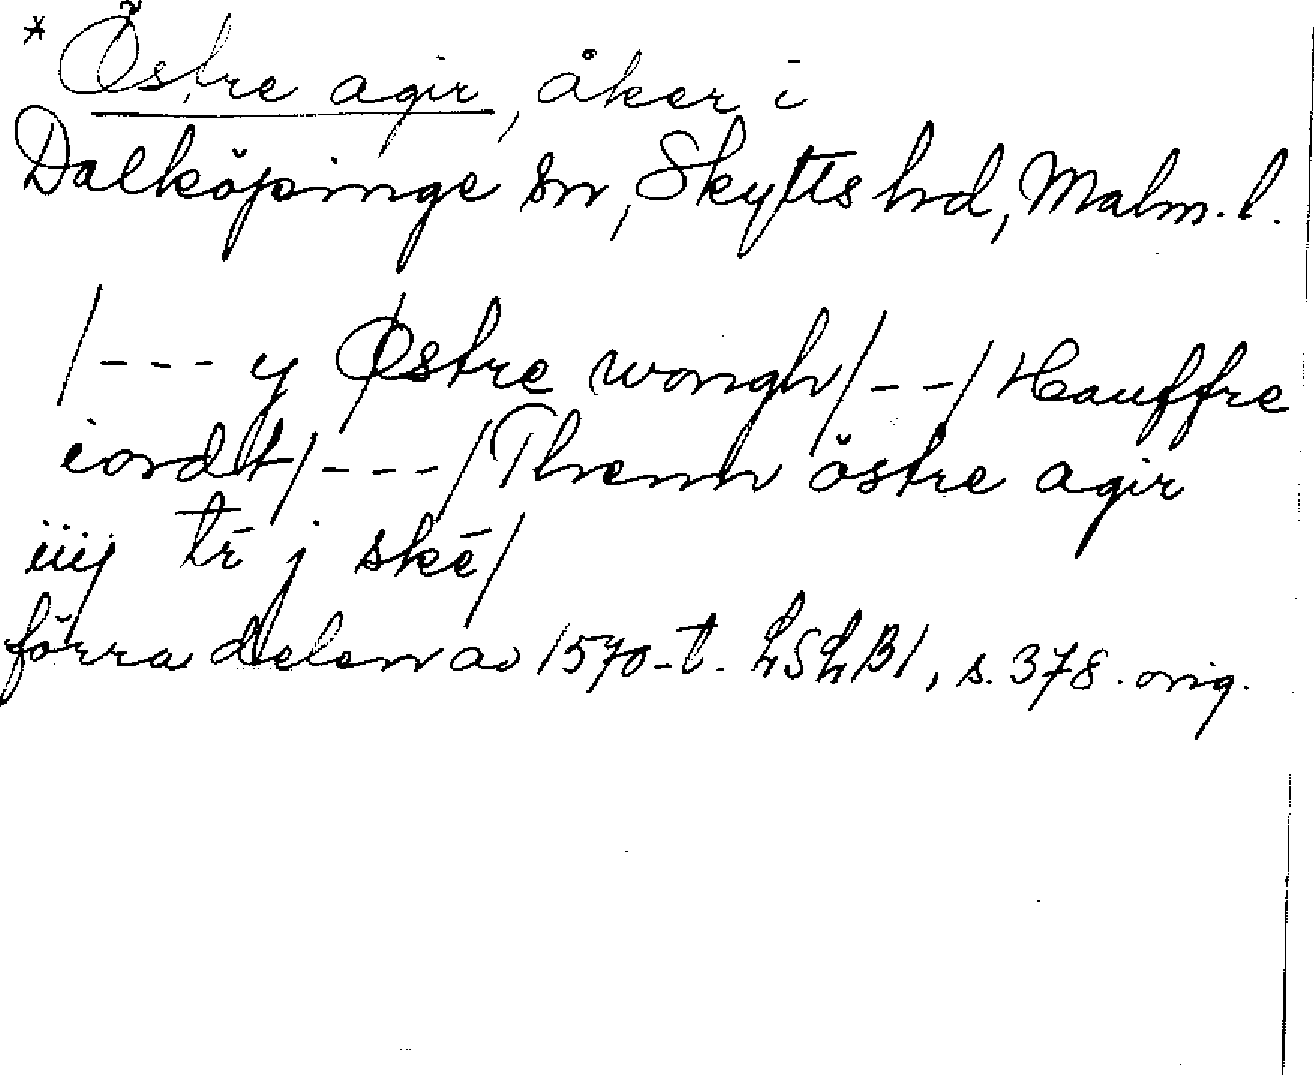 * Östre agir, åker i
Dalköpinge sn, Skytts hd, Malm. l.
/--- y Østre wongh/--/ Hauffre
iordt/---/Thenn östre agir
iiij tr̄ j skē/
förra delen av 1570-t. LSLB1, s. 378. orig.